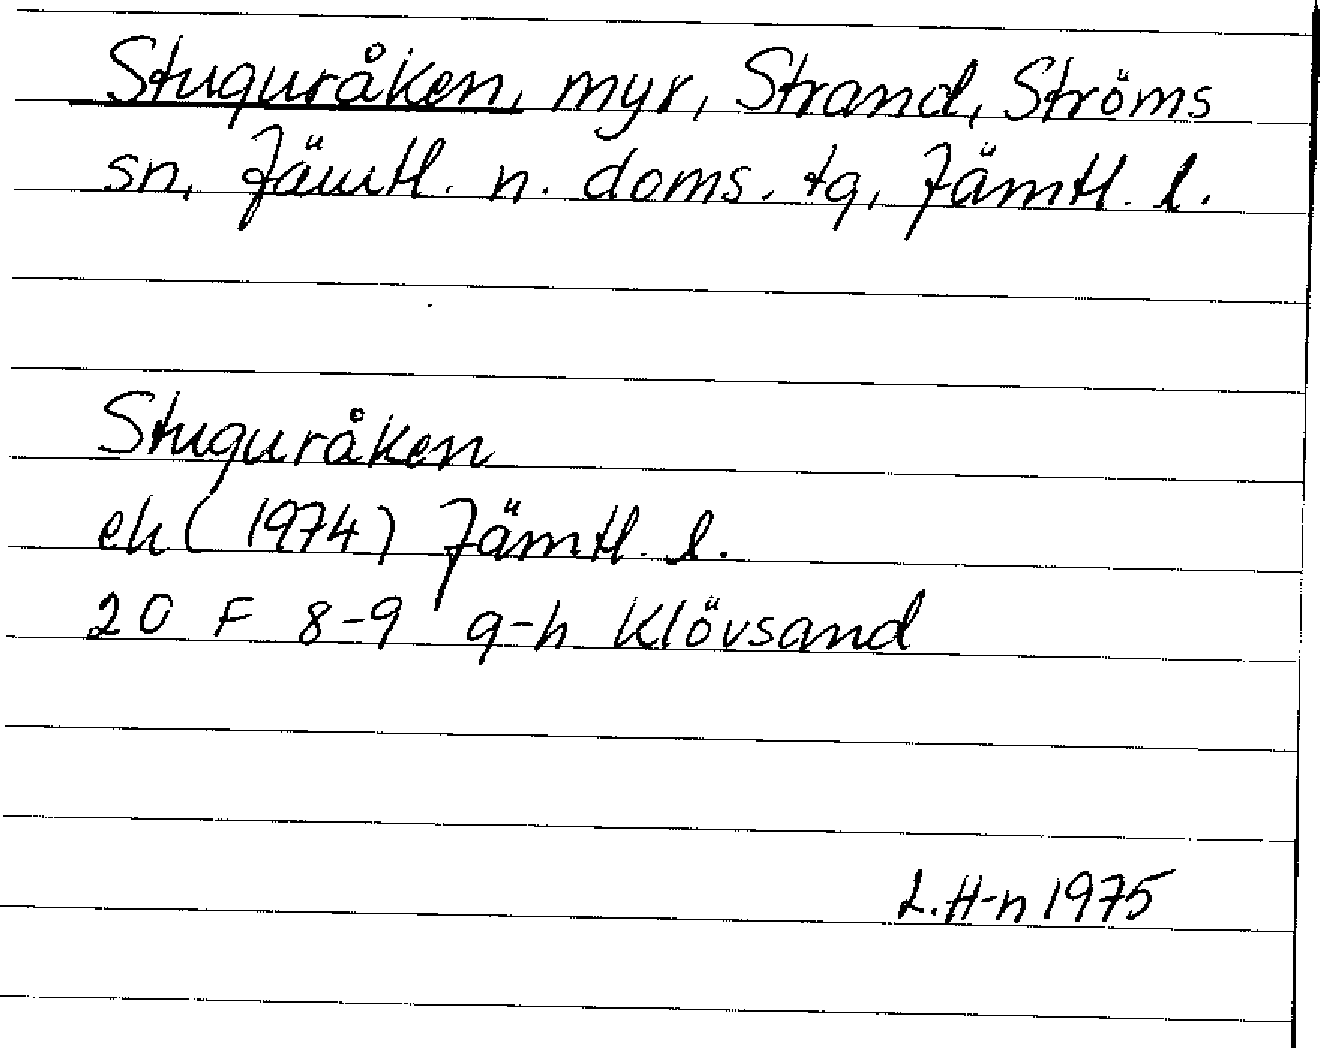 Stuguråken, myr, Strand, Ströms
sn, Jämtl. n. doms. tg, Jämtl. l.
Stuguråken
ek (1974) Jämtl. l.
20 F 8-9 g-h Klövsand
L.H-n 1975